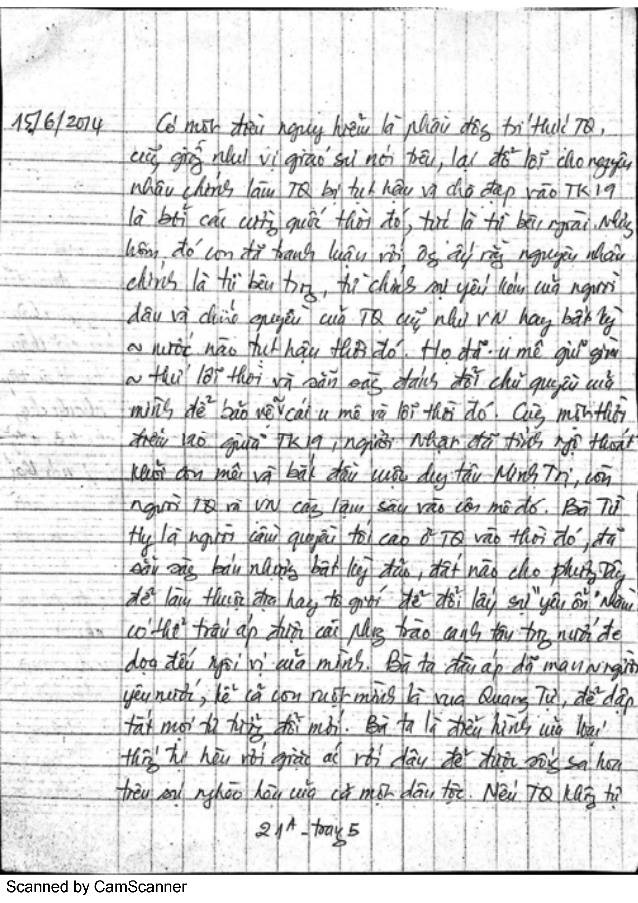 15/6/2014 Có một điều nguy hiểm là phần đông trí thức TQ,
cũg giốg như vị giáo sư nói trên, lại đổ lỗi cho nguyên
nhân chính làm TQ bị tụt hậu và chà đạp vào TK19
là bởi các cường quốc thời đó, tức là từ bên ngoài. Nhưg
hôm đó con đã tranh luận với ôg ấy rằg nguyên nhân
chính là từ bên trg, từ chính sự yếu kém của người
dân và chính quyền của TQ cũg như VN hay bất kỳ
~ nước nào tụt hậu thời đó. Họ đã u mê giữ gìn
~ thứ lỗi thời và sẵn sàg đánh đổi chủ quyền của
mình để bảo vệ cái u mê và lỗi thời đó. Cùg một thời
điểm vào giữa TK19, người Nhật đã tỉnh ngộ thoát
khỏi cơn mê và bắt đầu cuộc duy tân Minh Trị, còn
người TQ và VN càg lậm sâu vào cơn mê đó. Bà Từ
Hy là người cầm quyền tối cao ở TQ vào thời đó, đã
sẵn sàg bán nhượg bất kỳ đảo, đất nào cho phươg Tây
để làm thuộc địa hay tô giới để đổi lấy sự "yên ổn" nhằm
có thể trấn áp được các phg trào canh tân trg nước đe
dọa đến ngôi vị của mình. Bà ta đàn áp dã man ~ người
yêu nước, kể cả con ruột mình là vua Quang Tự, để dập
tắt mọi tư tưởg đổi mới. Bà ta là điển hình của loại
thốg trị hèn với giặc ác với dân để được sốg sa hoa
trên sự nghèo hèn của cả một dân tộc. Nếu TQ khôg tự
21A - trag 5
Scanned by CamScanner